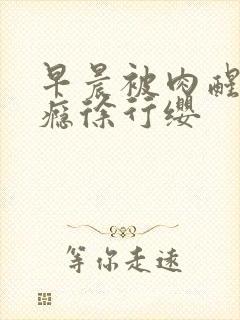 早晨被肉醒
瘾徐行缨
等你走远